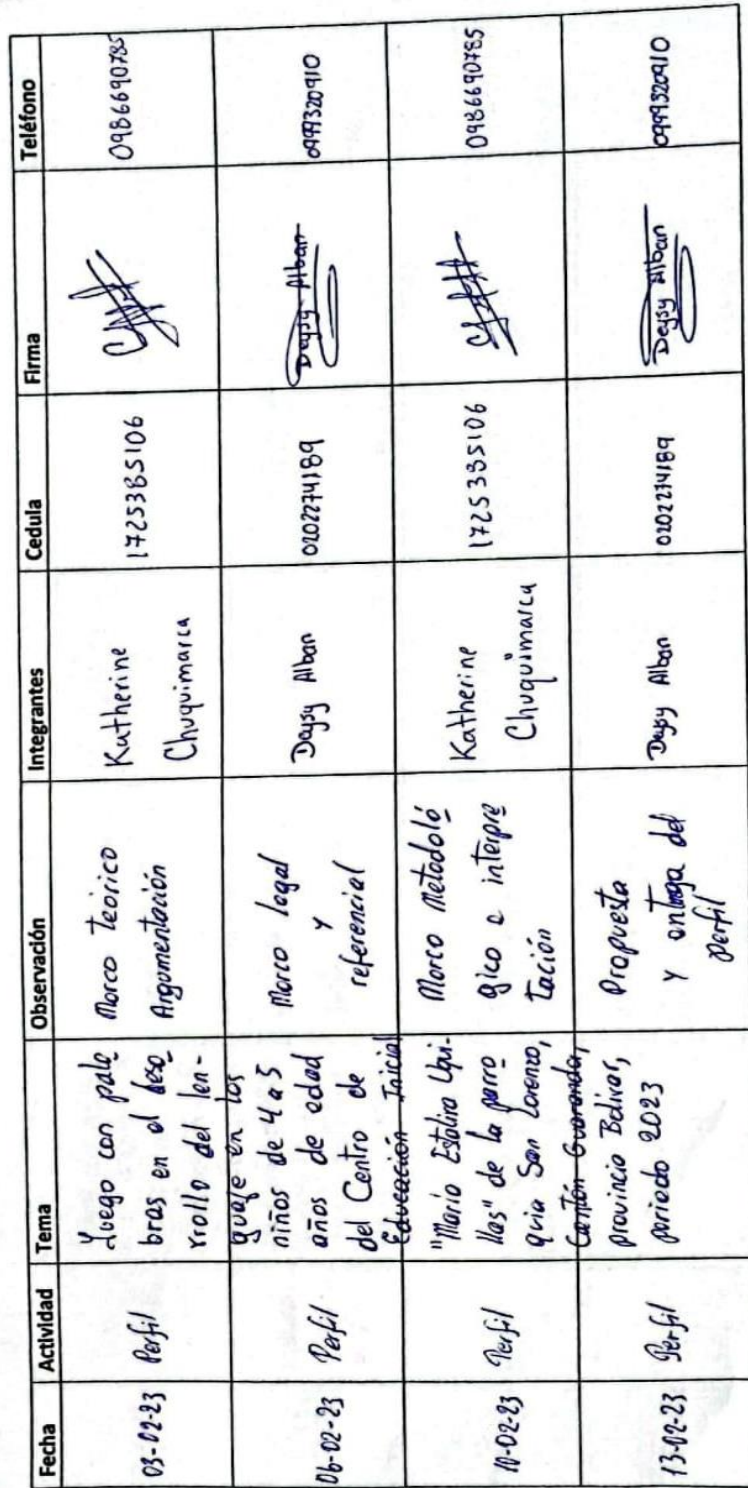 Fecha Actividad Tema Observación Integrantes Cedula Firma Teléfono
03-02-23 Perfil
Juego con pala
bras en el desa
rrollo del len-
Marco teórico
Argumentación
Katherine
Chuquimarca
1725385106
0986690785
06-02-23 Perfil
guaje en los
niños de 4 a 5
años de edad
del Centro de
Educación Inicial
Marco legal
y
referencial
Deysy Alban
0202274189
Deysy Alban
0999320910
10-02-23 Perfil
"Mario Estalino Uqui-
llas" de la parro
quia San Lorenzo,
Marco Metodoló
gico e interpre
tación
Katherine
Chuquimarca
1725385106
0986690785
13-02-23 Perfil
Cantón Guaranda,
provincia Bolívar,
periodo 2023
Propuesta
y entrega del
perfil
Deysy Alban
0202274189
Deysy Alban
0999320910